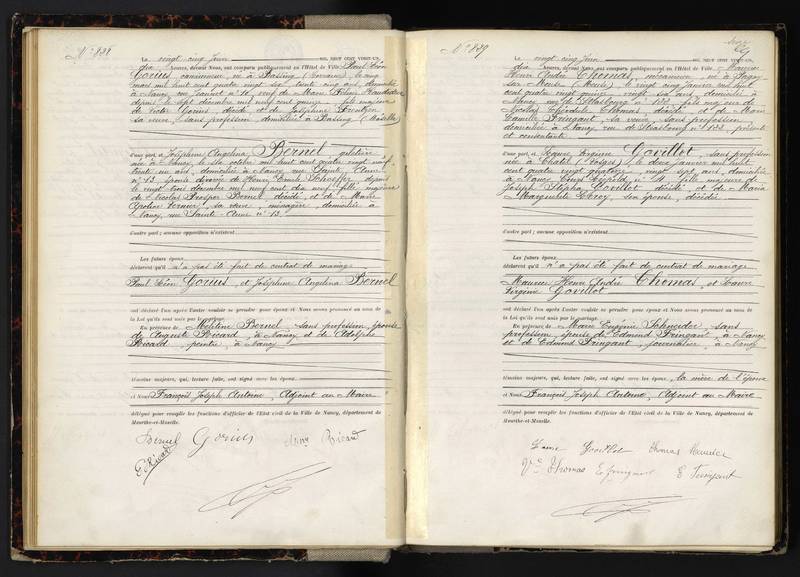 N° 838
Le vingt cinq juin mil neuf cent vingt-un,
dix heures, devant Nous, ont comparu publiquement en l'Hôtel de Ville, Paul Léon
Gorius, né à Rassing (Lorraine) le cinq
mai mil huit cent quatre vingt six, trente cinq ans, domicilié
à Nancy, rue
depuis le sept décembre mil neuf cent quinze, fils majeur
de Victor Gorius, décédé, et de Joséphine
sa veuve, sans profession, domiciliée à Rassing (Moselle)
d'une part, et Joséphine Angelina Bernel, giletière
née à Nancy, le dix octobre mil huit cent quatre vingt neuf,
trente un ans, domiciliée à Nancy, rue Sainte Anne
n° 13, épouse divorcée de Henri Émile Schoeffer, depuis
le vingt trois décembre mil neuf cent dix neuf, fille majeure
de Nicolas Prosper Bernel, décédé, et de Marie
sa veuve, ménagère, domiciliée à
Nancy, rue Sainte-Anne n° 13.
d'autre part; aucune opposition n'existant
Les futurs époux
déclarent qu'il n'a pas été fait de contrat de mariage
Paul Léon Gorius, et Joséphine Angelina Bernel
ont déclaré l'un après l'autre vouloir se prendre pour époux et Nous avons prononcé au nom de
la Loi qu'ils sont unis par le mariage.
En présence de Albertine Bernel, sans profession, épouse
de Auguste Ricard, à Nancy et de Adolphe
Ricard, peintre, à Nancy
témoins majeurs, qui, lecture faite, ont signé avec les époux
et Nous François Joseph Antoine, Adjoint au Maire
délégué pour remplir les fonctions d'officier de l'État civil de la Ville de Nancy, département de
Meurthe-et-Moselle.
Bernel Gorius Ricard
Ricard
N° 839
Le vingt cinq juin mil neuf cent vingt-un,
dix heures, devant Nous, ont comparu publiquement en l'Hôtel de Ville, Maurice
Henri André Thomas, mécanicien, né à Pagny
sur Meuse (Meuse) le vingt cinq janvier mil huit
cent quatre vingt quinze, vingt six ans, domicilié à
Nancy, rue de Strasbourg n° 133, fils majeur de
Nicolas Théodule Thomas, décédé, et de Marie
Camille Fringant, sa veuve, sans profession,
domiciliée à Nancy, rue de Strasbourg n° 133, présente
et consentante
d'une part, et Laure Virginie Govillot, sans profession
née à Châtel (Vosges) le deux janvier mil huit
cent quatre vingt quatorze, vingt sept ans, domiciliée
à Nancy, Cours Léopold, fille majeure de
Joseph Stéphen Govillot, décédé, et de Maria
Marguerite Leroy, son épouse, décédée.
d'autre part; aucune opposition n'existant
Les futurs époux
déclarent qu'il n'a pas été fait de contrat de mariage
Maurice Henri André Thomas, et Laure
Virginie Govillot
ont déclaré l'un après l'autre vouloir se prendre pour époux et Nous avons prononcé au nom de
la Loi qu'ils sont unis par le mariage.
En présence de Marie Eugénie Schneider, sans
profession, épouse de Edmond Fringant, à Nancy
et de Edmond Fringant, journalier, à Nancy
témoins majeurs, qui, lecture faite, ont signé avec les époux, la mère de l'époux
et Nous François Joseph Antoine, Adjoint au Maire
délégué pour remplir les fonctions d'officier de l'État civil de la Ville de Nancy, département de
Meurthe-et-Moselle.
Laure Govillot Thomas Maurice
Vve Thomas E Fringant E Fringant